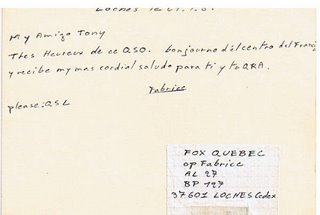 Loches le
My Amigo Tony
Thes Heureux de ce QSO. bonjourno dél centro del Franç
y recibe my mas cordial saludo para ti y tu QRA.
Fabrice
please: QSL
FOX QUEBEC
op Fabrice
AL 27
BP 127
37601 LOCHES Cedex